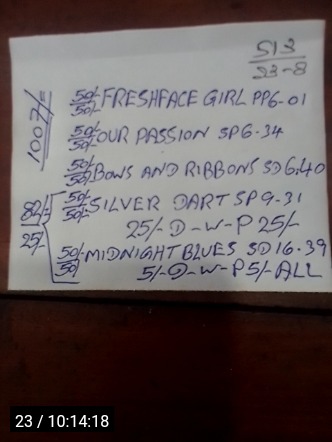 513
23-8
100/=
50/- FRESHFACE GIRL PP6-01
50/-
50/- OUR PASSION SP6.34
50/-
50/- BOWS AND RIBBONS SD6.40
50/-
82/=
25/-
50/- SILVER DART SP9.31
50/-
25/- D-W-P 25/-
50/- MIDNIGHT BLUES SD16.39
50/-
5/- D-W-P 5/- ALL
23 / 10:14:18